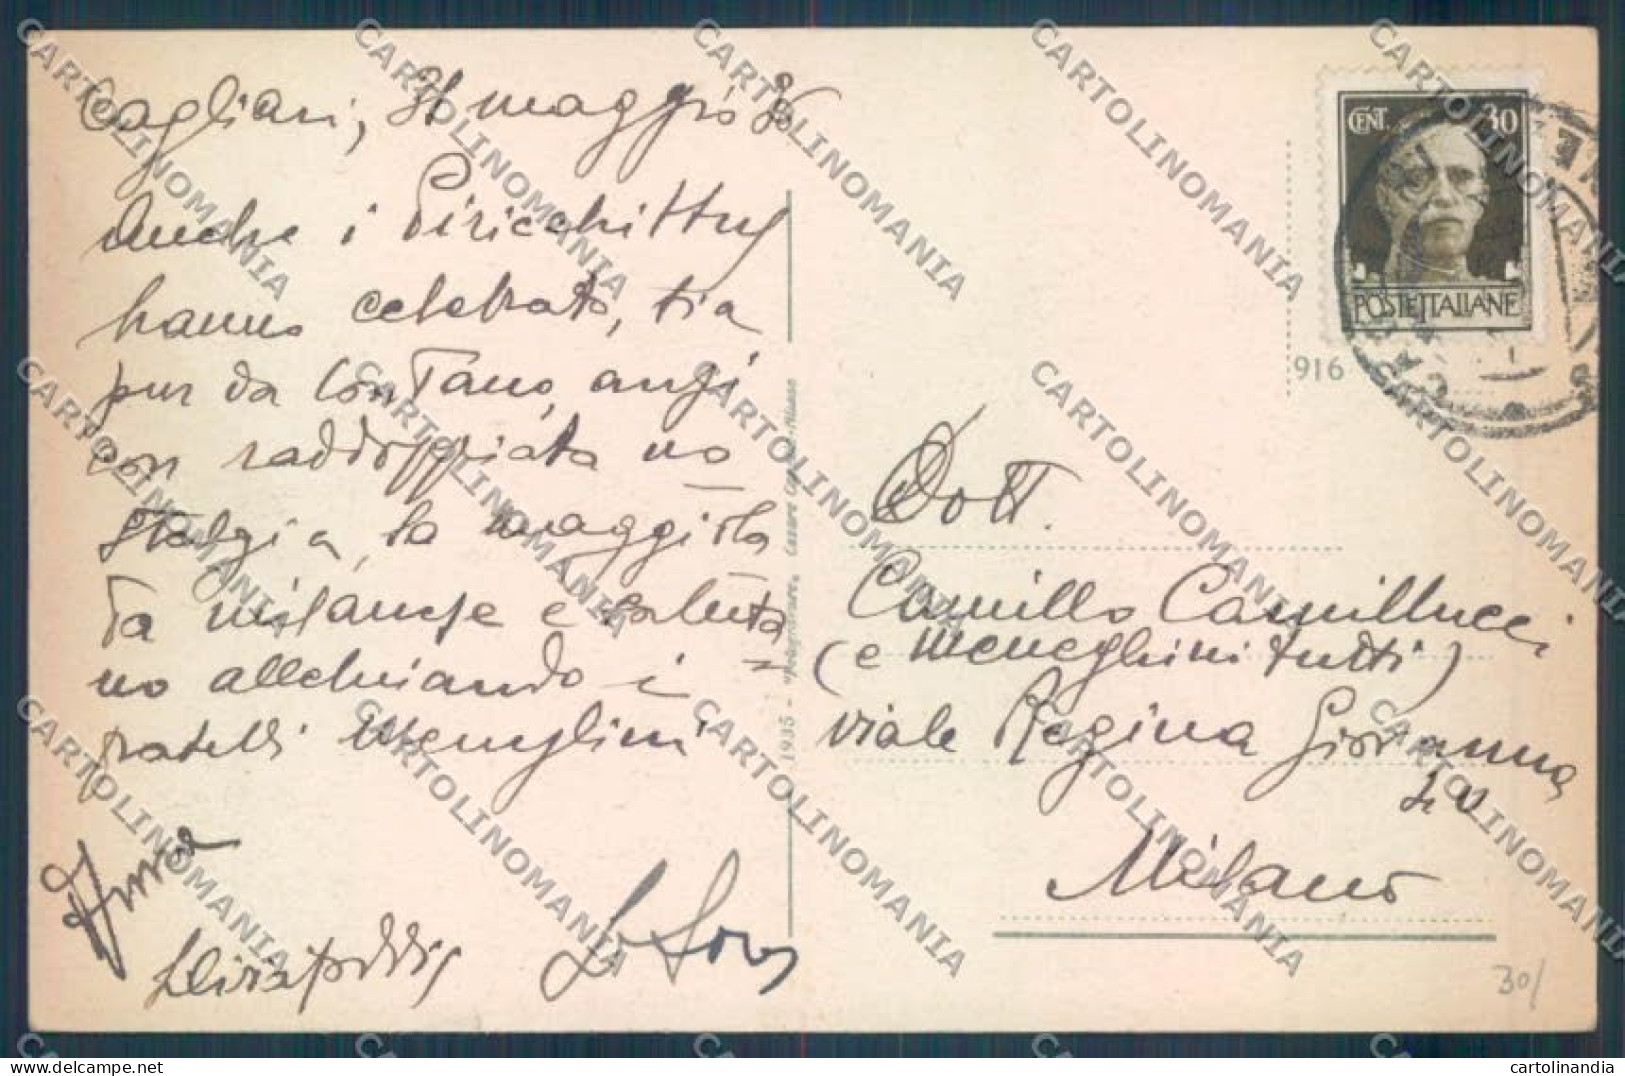 Cagliari, maggio
Anche i Piricchittus
hanno celebrato, sia
pur da lontano, anzi
con raddoppiata no-
stalgia, la maggiola
ta milanese e saluta
no allegriando i
fratelli Meneghini
CENT. 30
POSTE ITALIANE
916
Dott.
Camillo Camillucci
(e meneghini tutti)
viale Regina Giovanna
Milano
1935 -
30/
CARTOLINOMANIA
cartolinandia